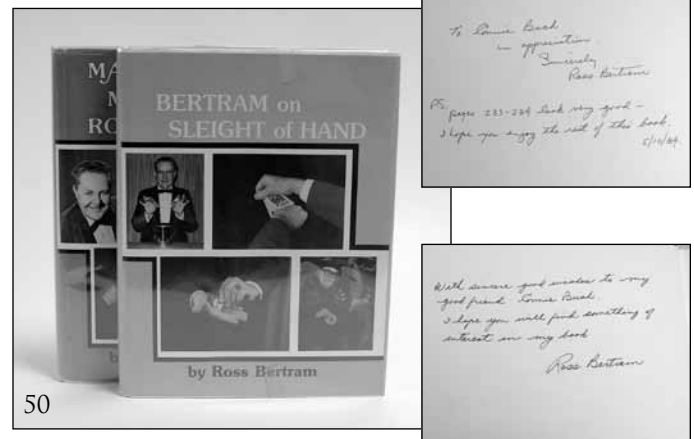 MA
M
RO
b
BERTRAM on
SLEIGHT of HAND
by Ross Bertram
50
To Connie Bush
in appreciation
Sincerely
Ross Bertram
PS. pages 233-234 look very good –
I hope you enjoy the rest of this book.
With sincere good wishes to my
good friend Connie Bush.
I hope you will find something of
interest in my book
Ross Bertram